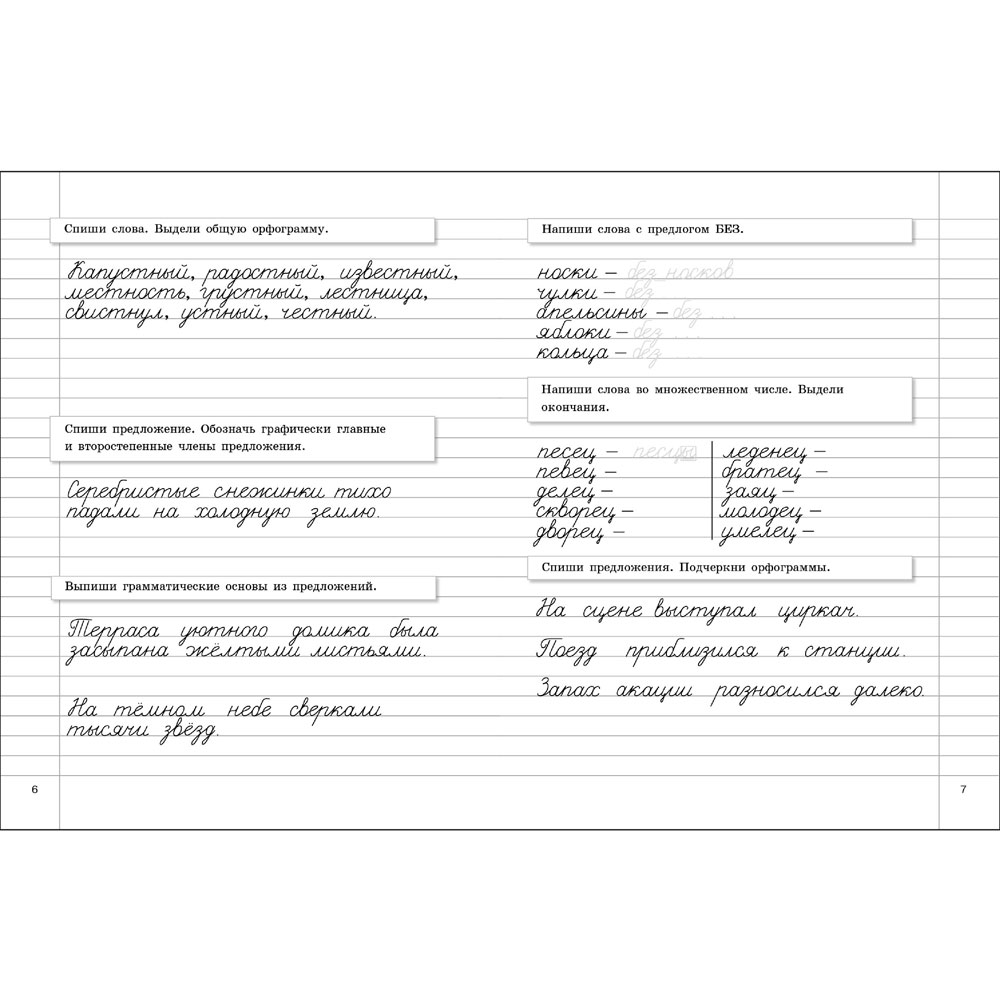 Спиши слова. Выдели общую орфограмму.
Капустный, радостный, известный,
местность, грустный, лестница,
свистнул, устный, честный.
Спиши предложение. Обозначь графически главные
и второстепенные члены предложения.
Серебристые снежинки тихо
падали на холодную землю.
Выпиши грамматические основы из предложений.
Терраса уютного домика была
засыпана жёлтыми листьями.
На тёмном небе сверкали
тысячи звёзд.
6
Напиши слова с предлогом БЕЗ.
носки – без носков
чулки – без
апельсины – без ...
яблоки – без ...
кольца – без ...
Напиши слова во множественном числе. Выдели
окончания.
песец – песцы
певец –
делец –
скворец –
дворец –
леденец –
братец –
заяц –
молодец –
умелец –
Спиши предложения. Подчеркни орфограммы.
На сцене выступал циркач.
Поезд приблизился к станции.
Запах акации разносился далеко.
7